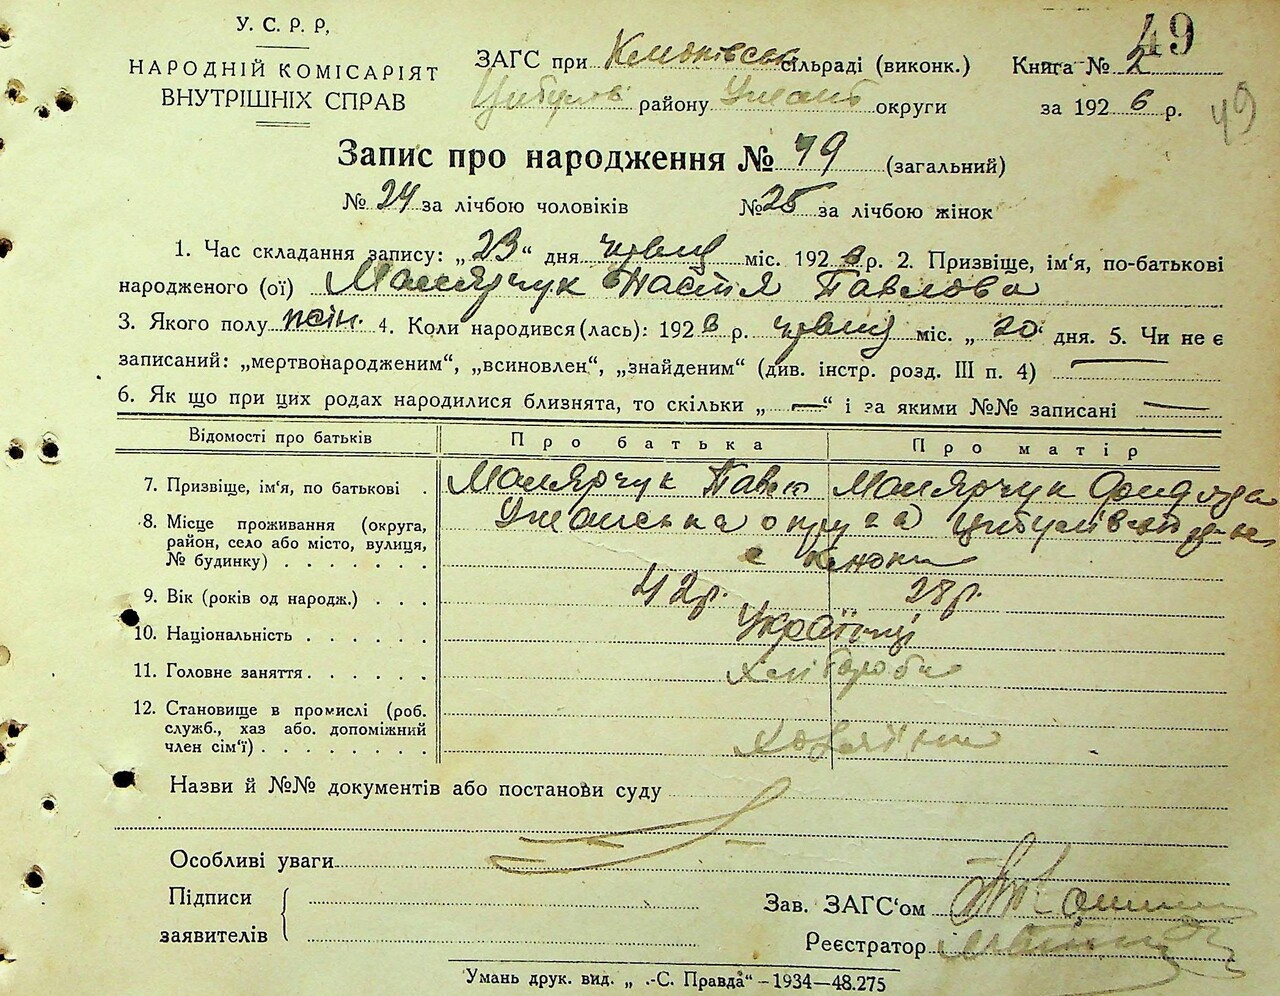 49
У. С. Р. Р,
НАРОДНІЙ КОМІСАРІЯТ
ВНУТРІШНІХ СПРАВ
ЗАГС при сільраді (виконк.) Книга № 2
району округи за 1926 р.
49
Запис про народження № 49 (загальний)
№ 24 за лічбою чоловіків № 25 за лічбою жінок
1. Час складання запису: „23“ дня міс. 1926 р. 2. Призвіще, ім'я, по-батькові
народженого (ої) Малярчук Настя Павлова
3. Якого полу жін. 4. Коли народився (лась): 1926 р. міс. „20“ дня. 5. Чи не є
записаний: „мертвонародженим“, „всиновлен“, „знайденим“ (див. інстр. розд. III п. 4) —
6. Як що при цих родах народилися близнята, то скільки „—“ і за якими №№ записані —
Відомості про батьків Про батька Про матір
7. Призвіще, ім'я, по батькові . Малярчук Павло Малярчук
8. Місце проживання (округа, Уманська округа
район, село або місто, вулиця,
№ будинку) . . . . . . .
9. Вік (років од народж.) . . . 42р. 28р.
10. Національність . . . . . . Українці
11. Головне заняття . . . . . . Хлібороби
12. Становище в промислі (роб.
служб., хаз або. допоміжний
член сім'ї) . . . . . . . . Хазяїни
Назви й №№ документів або постанови суду
Особливі уваги
Підписи
заявителів
Зав. ЗАГС'ом
Реєстратор
Умань друк. вид. „ .-С. Правда“ – 1934—48.275